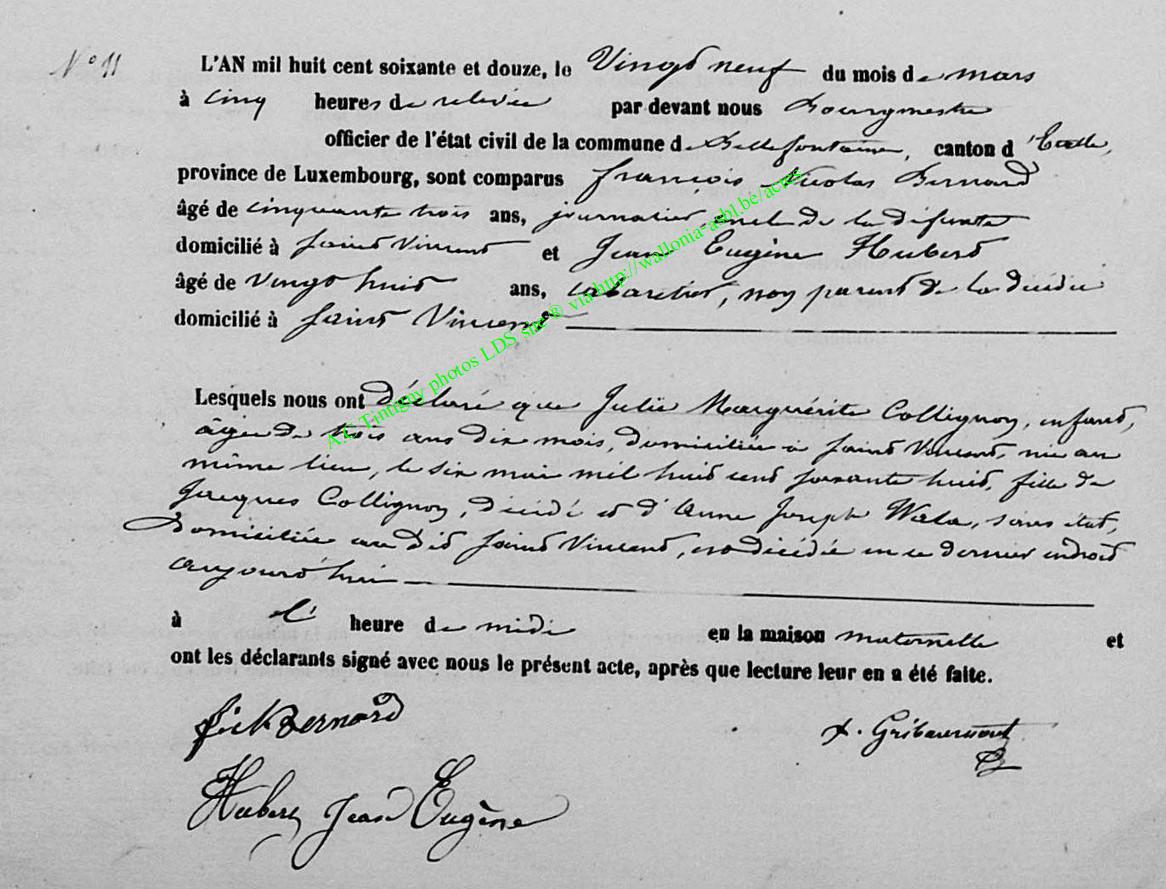 N° 11
L'AN mil huit cent soixante et douze, le Vingt neuf du mois de mars
à cinq heures de relevée par devant nous Bourgmestre
officier de l'état civil de la commune de Bellefontaine, canton d'Etalle,
province de Luxembourg, sont comparus François Nicolas Bernard
âgé de cinquante trois ans, journalier, oncle de la défunte
domicilié à Saint Vincent et Jean Eugène Hubert
âgé de vingt huit ans, cabaretier, non parent de la décédée
domicilié à Saint Vincent
Lesquels nous ont déclaré que Julie Marguérite Collignon, enfant,
âgée de trois ans dix mois, domiciliée à Saint Vincent, née au
même lieu, le six mai mil huit cent soixante huit, fille de
Jacques Collignon, décédé et d'Anne Joseph Wala, sans état,
domiciliée au dit Saint Vincent, est décédée en ce dernier endroit
aujourd'hui
à l' heure de midi en la maison maternelle et
ont les déclarants signé avec nous le présent acte, après que lecture leur en a été faite.
Bernard
A. Gribaumont
Hubert Jean Eugène
A.E Tintigny photos LDS, site ® via http://wallonia-asbl.be/actes